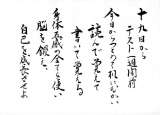 十九日から
テスト一週間前
今日からその机にむかい
読んで覚えて
書いて覚える
身体五感全てを使い
脳を鍛え、
自己を成長させよ